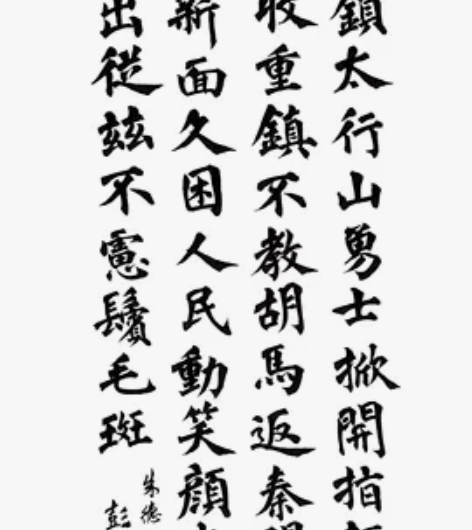 鎖太行山勇士掀開拍
收重鎮不教胡馬返秦
新面久困人民動笑顔
出從茲不憲鬢毛斑
朱德
彭